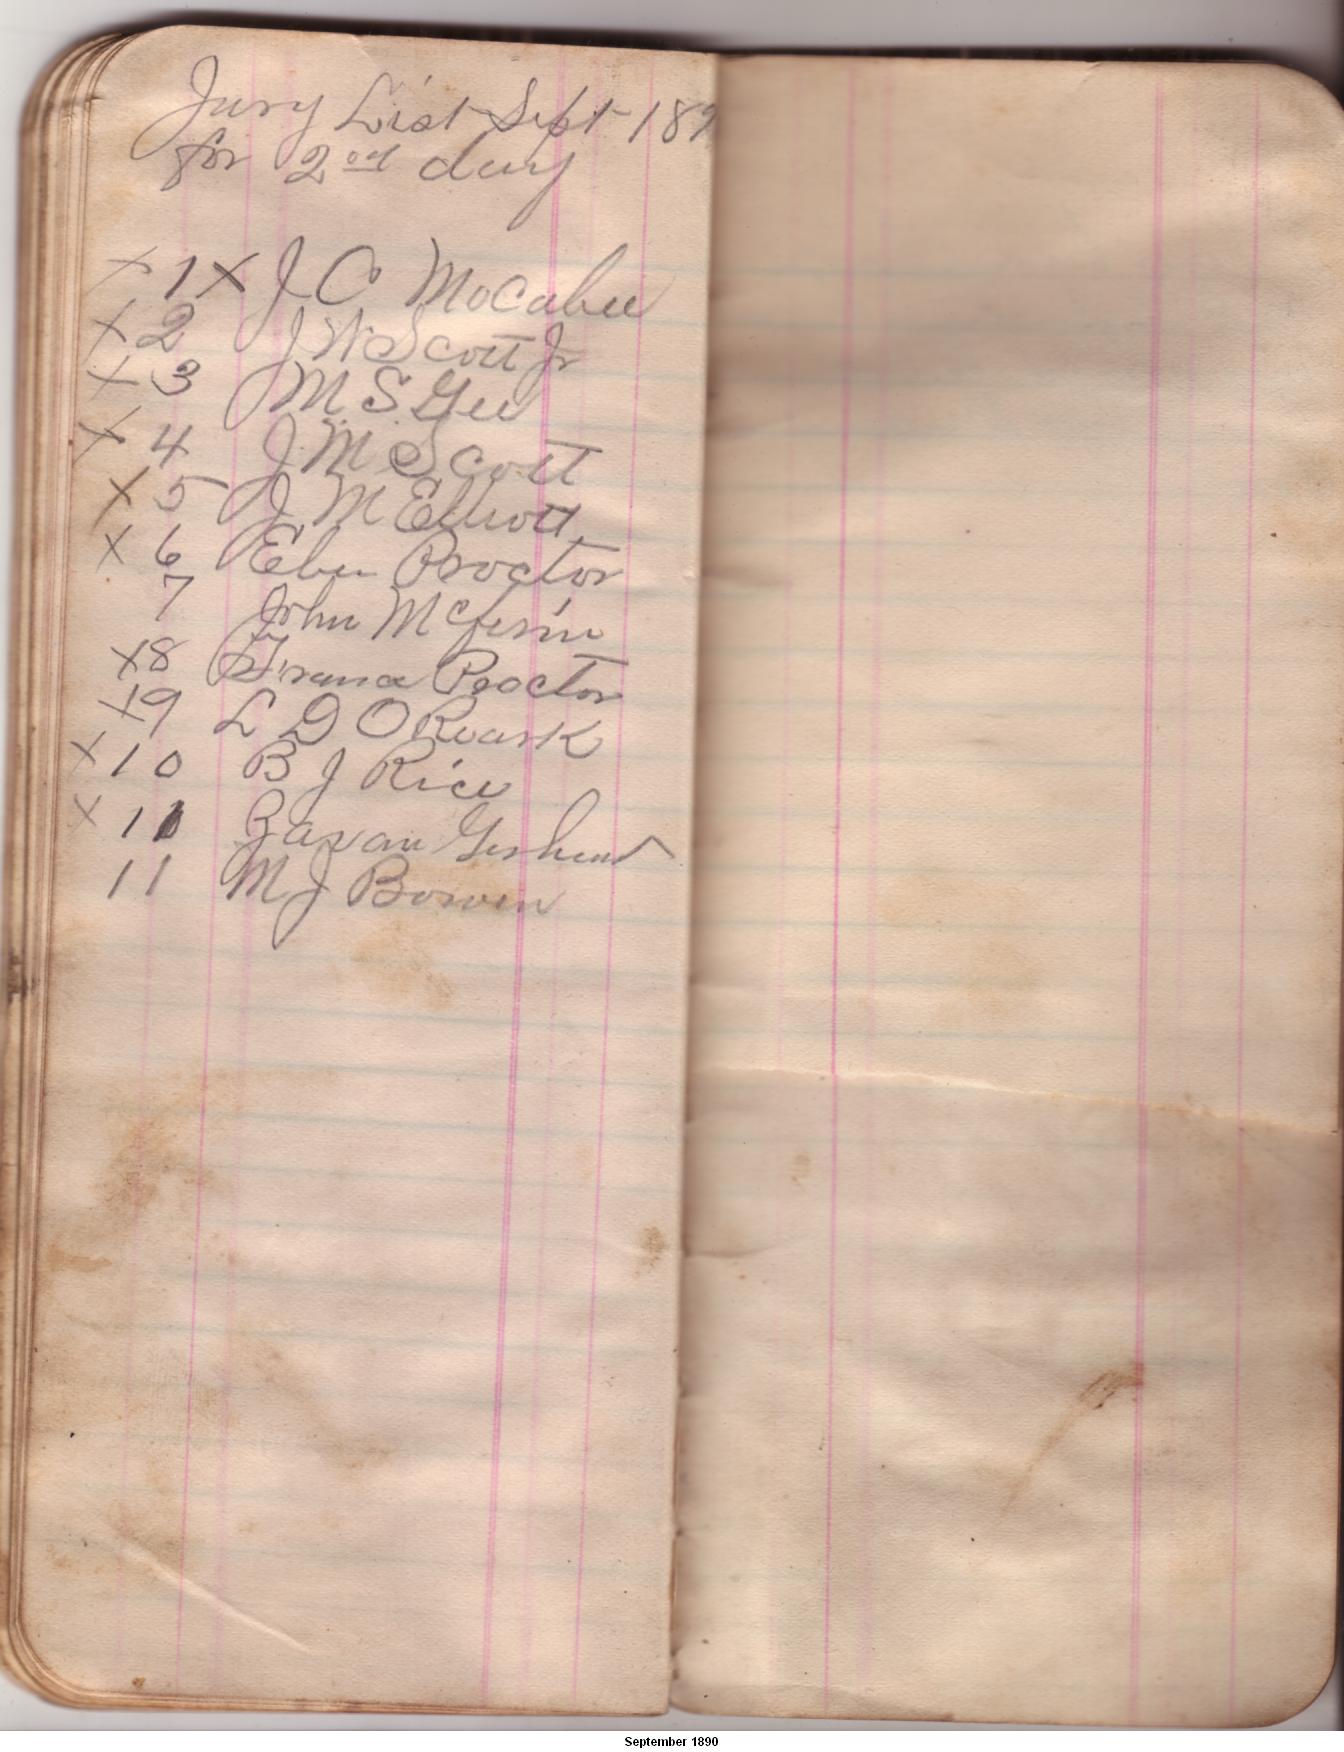 Jury List Sept 189
for 2nd day
X 1 X J C McCabee
X 2 J W Scott Jr
X 3 M S Gee
X 4 J. M. Scott
X 5 J M Elliott
X 6 Eben Proctor
7 John
X 8 Proctor
X 9 L D O Ruark
X 10 B J Rice
X 11
11 M J Bowen
September 1890